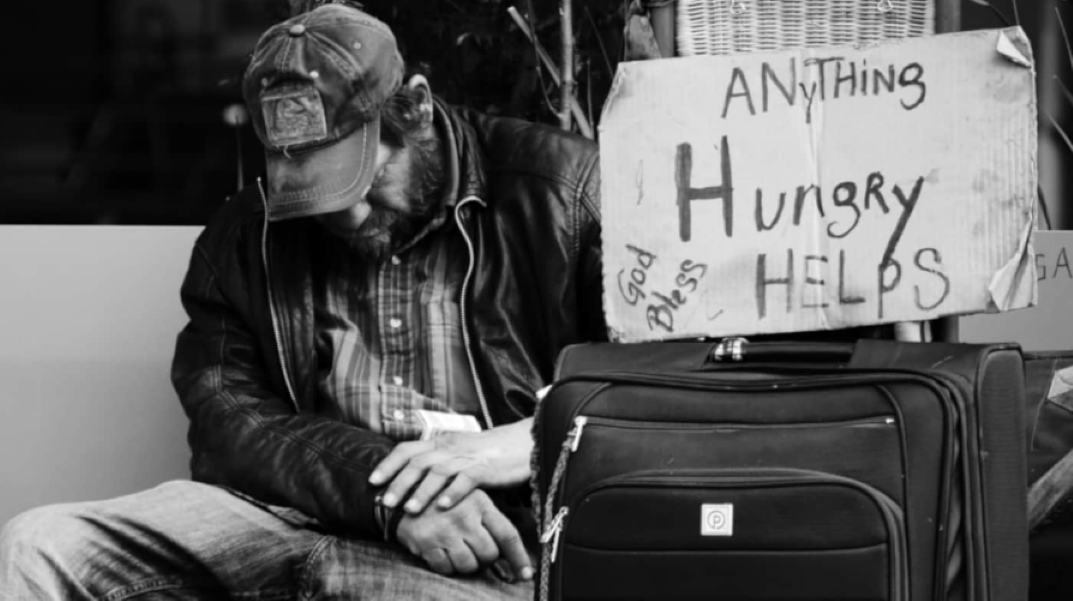 ANyTHing
HungRy
HELPS
God
Bless
GA